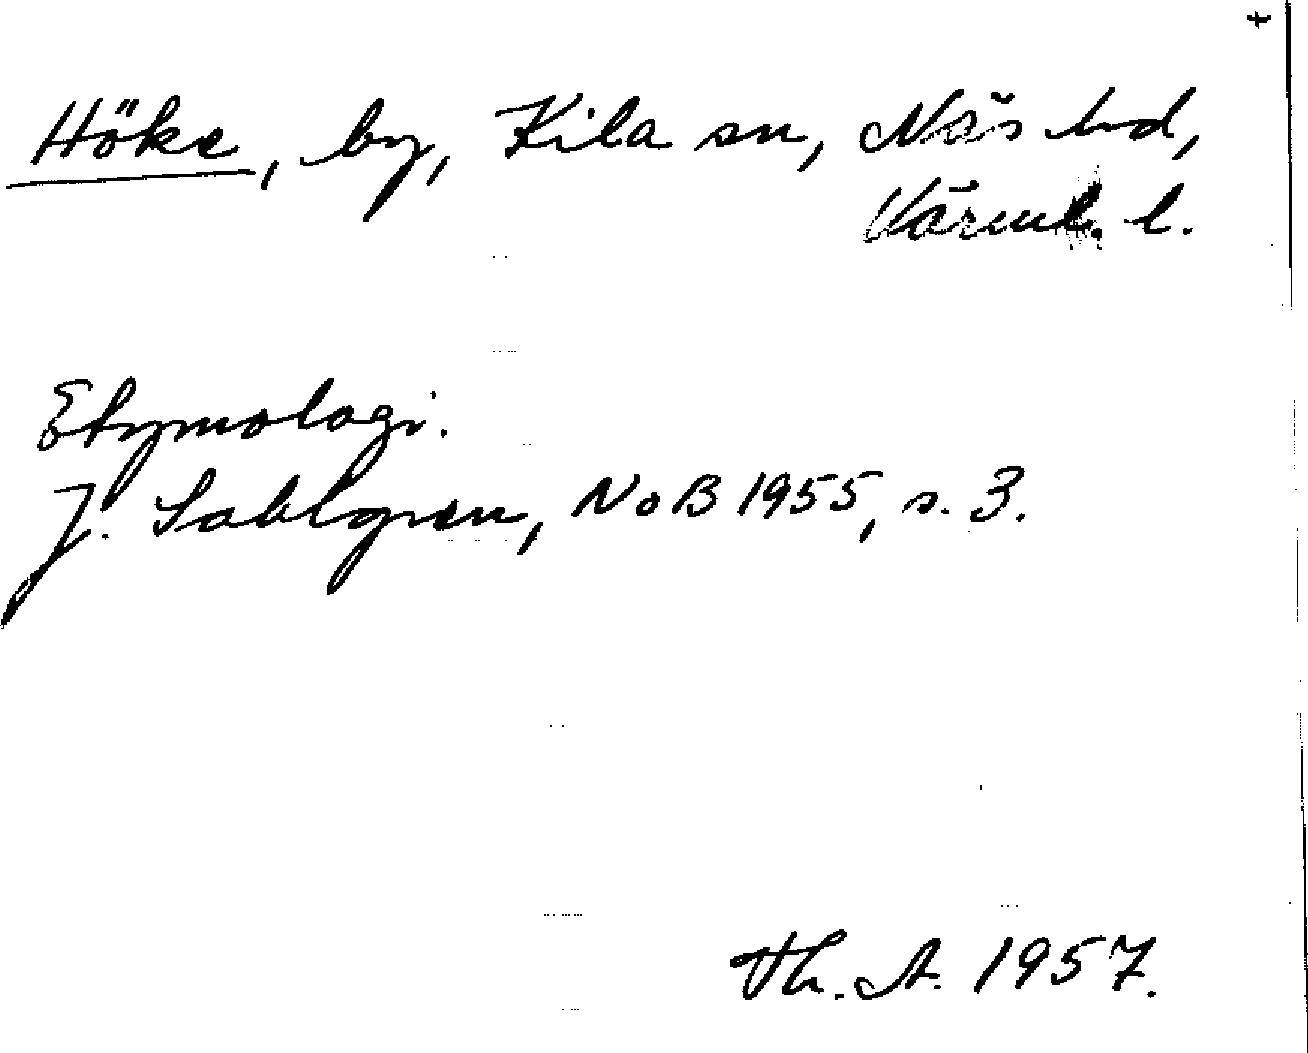 Höke, by, Kila sn, Näs hd,
Värml. l.
Etymologi.
J. Sahlgren, NoB 1955, s. 3.
Th. A. 1957.